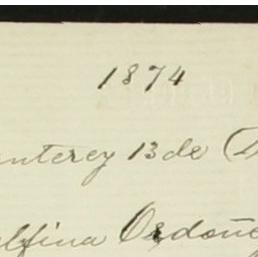 1874
nterey 13 de (D
lfina Ordoñe